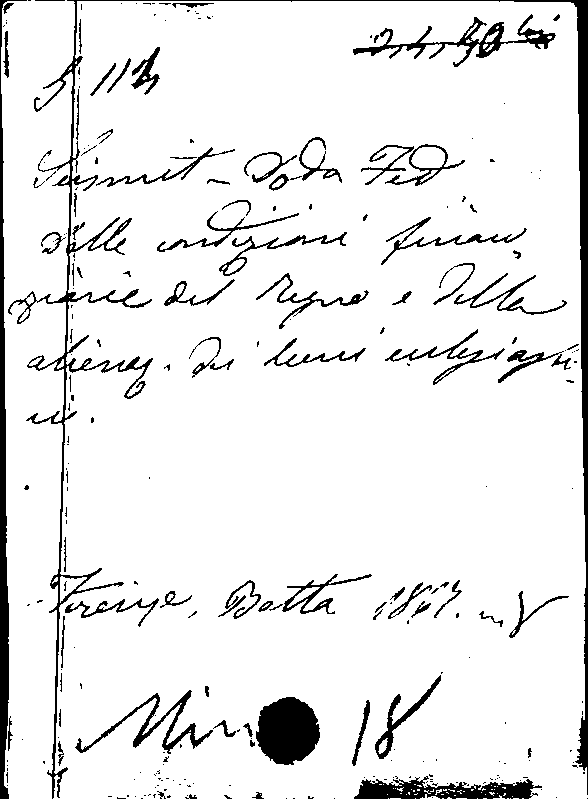 2.4.50 bis
S. 114
Seismit-Doda Fed
Delle condizioni finan-
ziarie del Regno e della
alienaz. dei beni eclesiasti-
ci.
Firenze, Botta 1867. in 8
Min 18